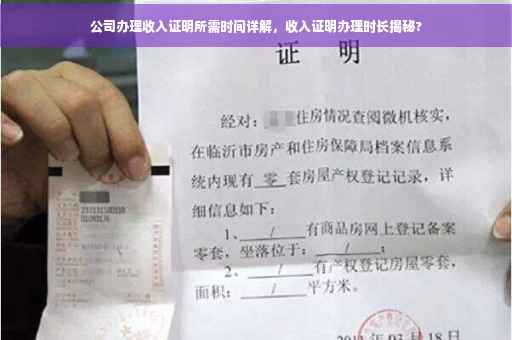 公司办理收入证明所需时间详解，收入证明办理时长揭秘？
证 明
经对：住房情况查阅微机核实，
在临沂市房产和住房保障局档案信息系
统内现有 零 套房屋产权登记记录，详
细信息如下：
1、 / 有商品房网上登记备案
零套，坐落位于： / ；
2、 / 有产权登记房屋零套，
面积： / 平方米。
03月18日